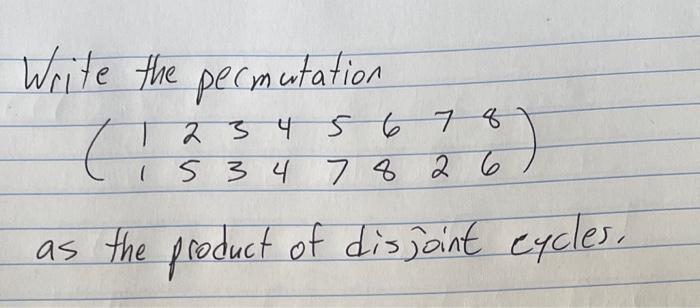 Write the permutation
( 1 2 3 4 5 6 7 8 )
( 1 5 3 4 7 8 2 6 )
as the product of disjoint cycles.